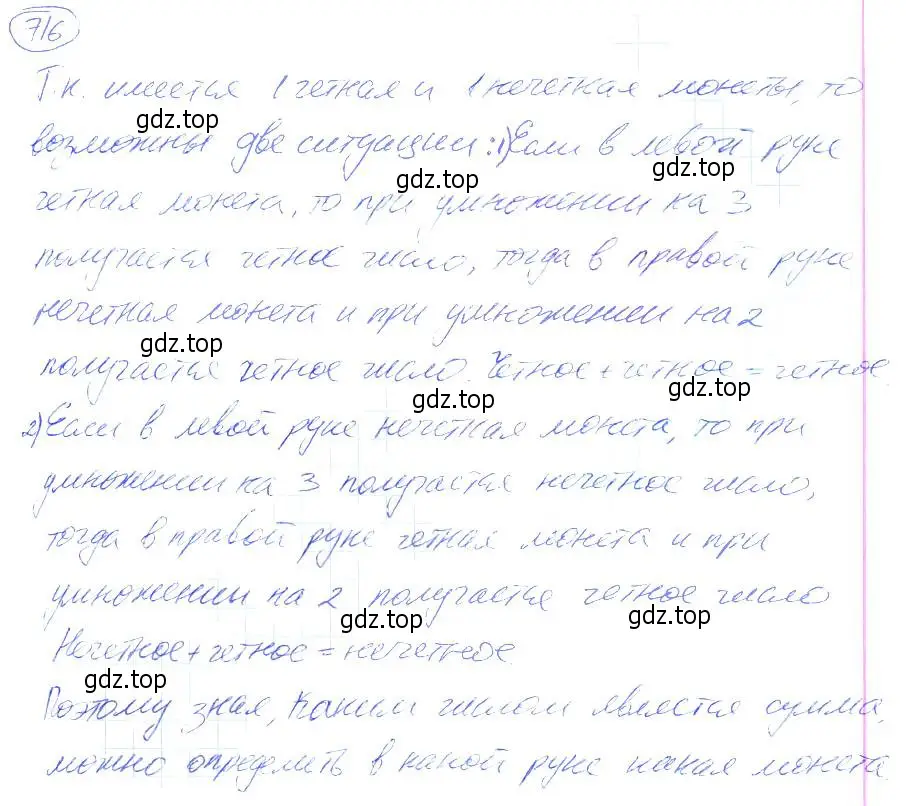 716
Т.к. имеется 1 четная и 1 нечетная монеты, то
возможны две ситуации: 1) Если в левой руке
четная монета, то при умножении на 3
получается четное число, тогда в правой руке
нечетная монета и при умножении на 2
получается четное число. Четное + четное = четное.
2) Если в левой руке нечетная монета, то при
умножении на 3 получается нечетное число,
тогда в правой руке четная монета и при
умножении на 2 получается четное число
Нечетное + четное = нечетное.
Поэтому зная, каким числом является сумма,
можно определить в какой руке какая монета
gdz.top
gdz.top
gdz.top
gdz.top
gdz.top
gdz.top
gdz.top
gdz.top
gdz.top